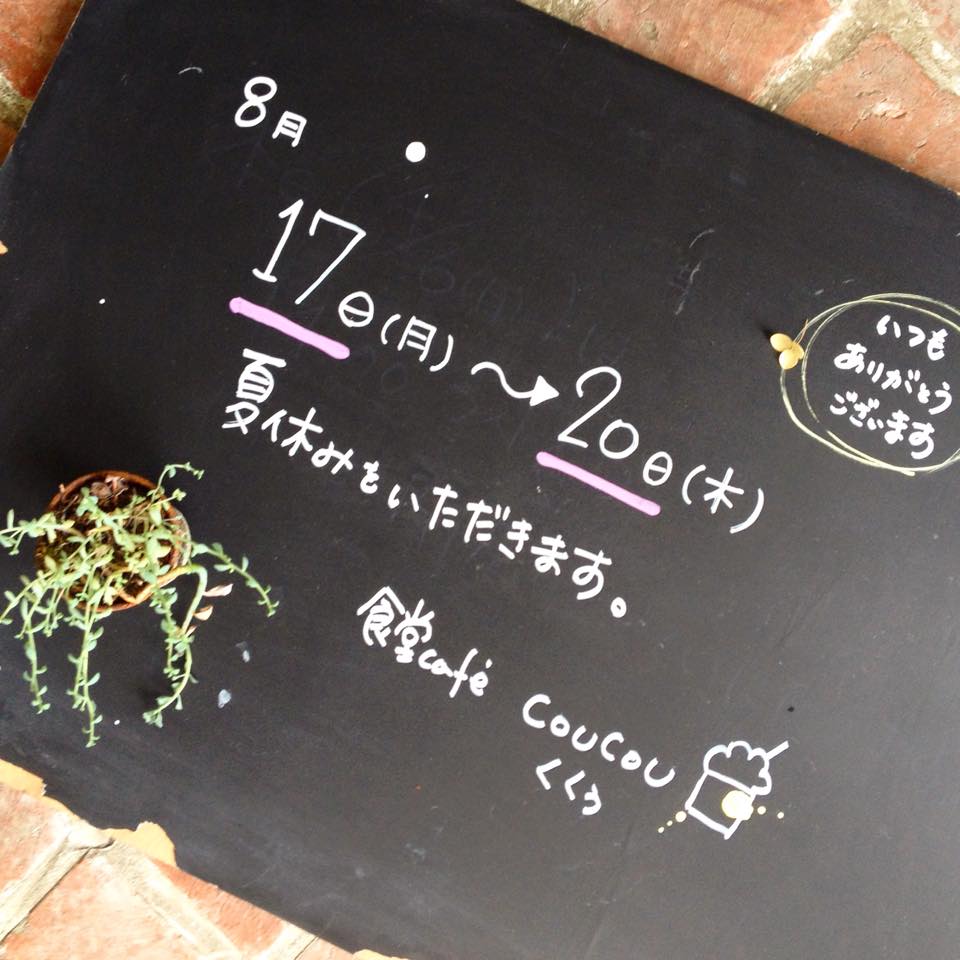 8月
17日(月)〜20日(木)
夏休みをいただきます。
食堂café coucou
くくぅ
いつも
ありがとう
ございます